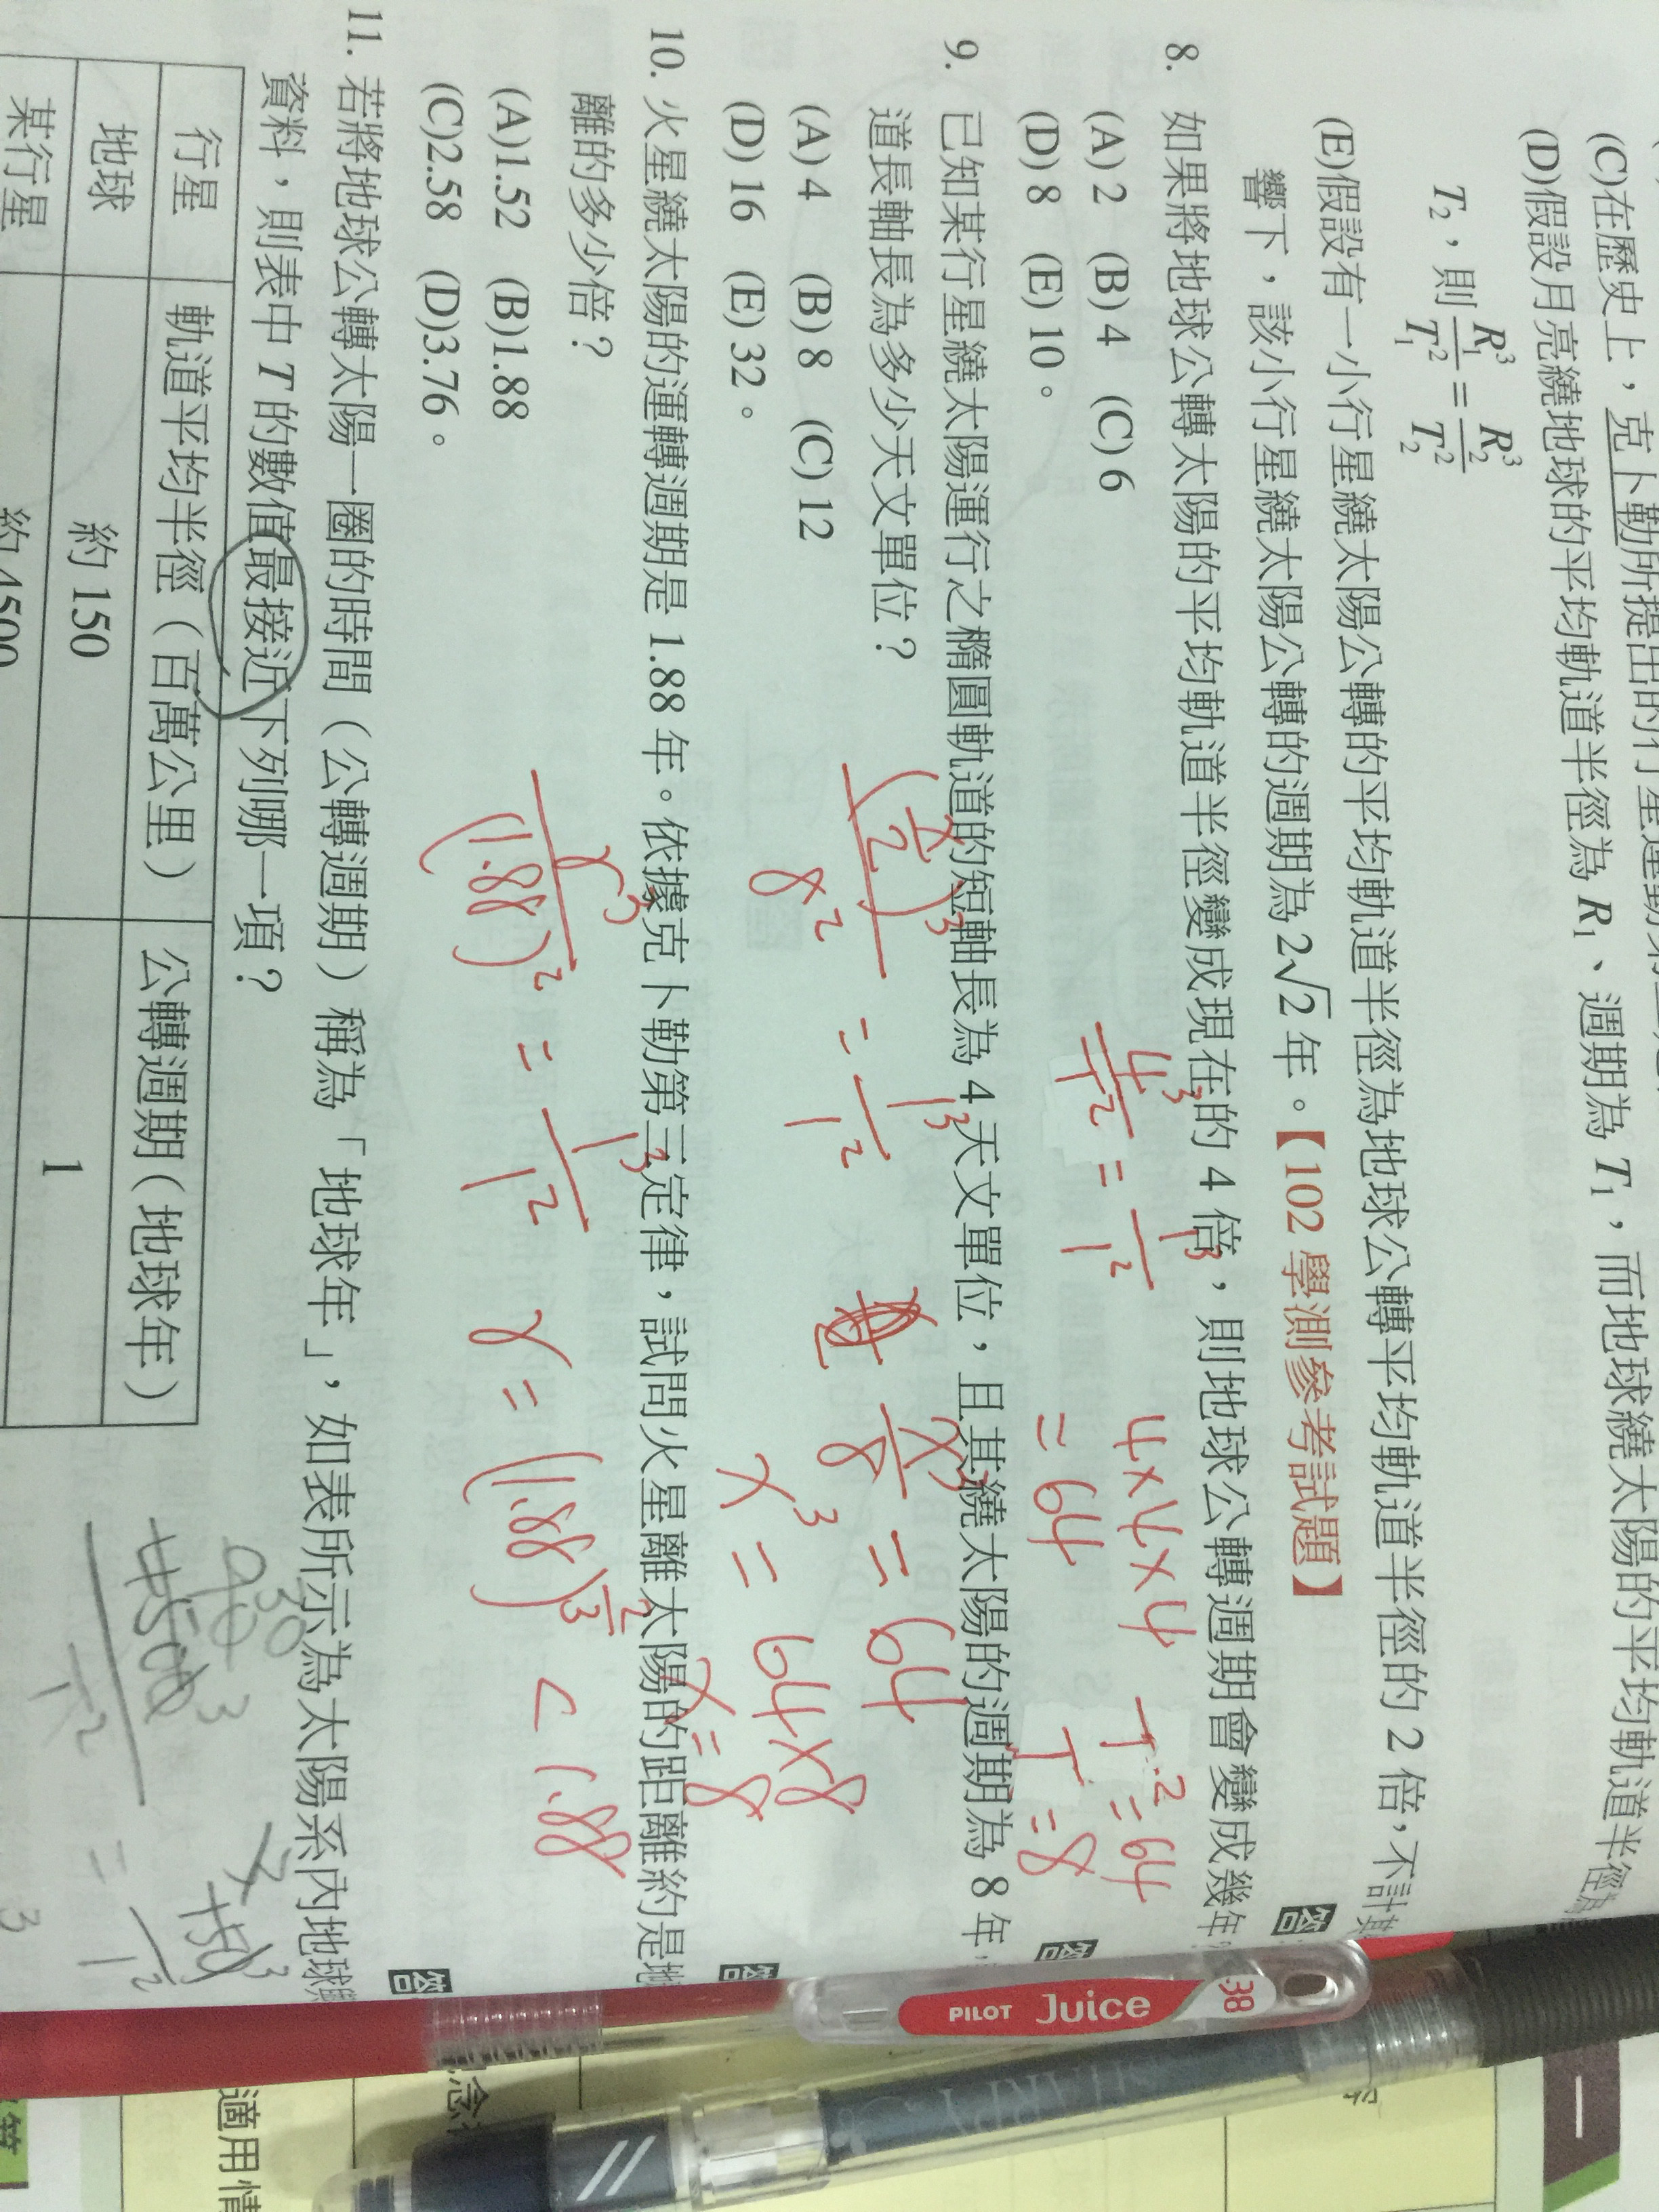 (C)在歷史上，克卜勒所提出的行星運動第
(D)假設月亮繞地球的平均軌道半徑為 R₁、週期為 T₁，而地球繞太陽的平均軌道半徑為
T₂，則 R₁³/T₁² = R₂³/T₂²
(E)假設有一小行星繞太陽公轉的平均軌道半徑為地球公轉平均軌道半徑的 2 倍，不計其
響下，該小行星繞太陽公轉的週期為 2√2 年。【102 學測參考試題】
答
8. 如果將地球公轉太陽的平均軌道半徑變成現在的 4 倍，則地球公轉週期會變成幾年？
(A) 2 (B) 4 (C) 6
(D) 8 (E) 10。
4³/T² = 1³/1²
4×4×4
= 64
T² = 64
T = 8
答
9. 已知某行星繞太陽運行之橢圓軌道的短軸長為 4 天文單位，且其繞太陽的週期為 8 年，
道長軸長為多少天文單位？
(A) 4 (B) 8 (C) 12
(D) 16 (E) 32。
(x/2)³/8² = 1³/1²
x³/8 = 64
x³ = 64×8
x = 8
答
10. 火星繞太陽的運轉週期是 1.88 年。依據克卜勒第三定律，試問火星離太陽的距離約是地
離的多少倍？
(A)1.52 (B)1.88
(C)2.58 (D)3.76。
r³/(1.88)² = 1³/1²
r = (1.88)^(2/3) < 1.88
答
11. 若將地球公轉太陽一圈的時間（公轉週期）稱為「地球年」，如表所示為太陽系內地球與
資料，則表中 T 的數值最接近下列哪一項？
行星 軌道平均半徑（百萬公里） 公轉週期（地球年）
地球 約 150 1
某行星 約 4500
30
4500³/T² = 150³/1²
PILOT Juice 38
一
適用情